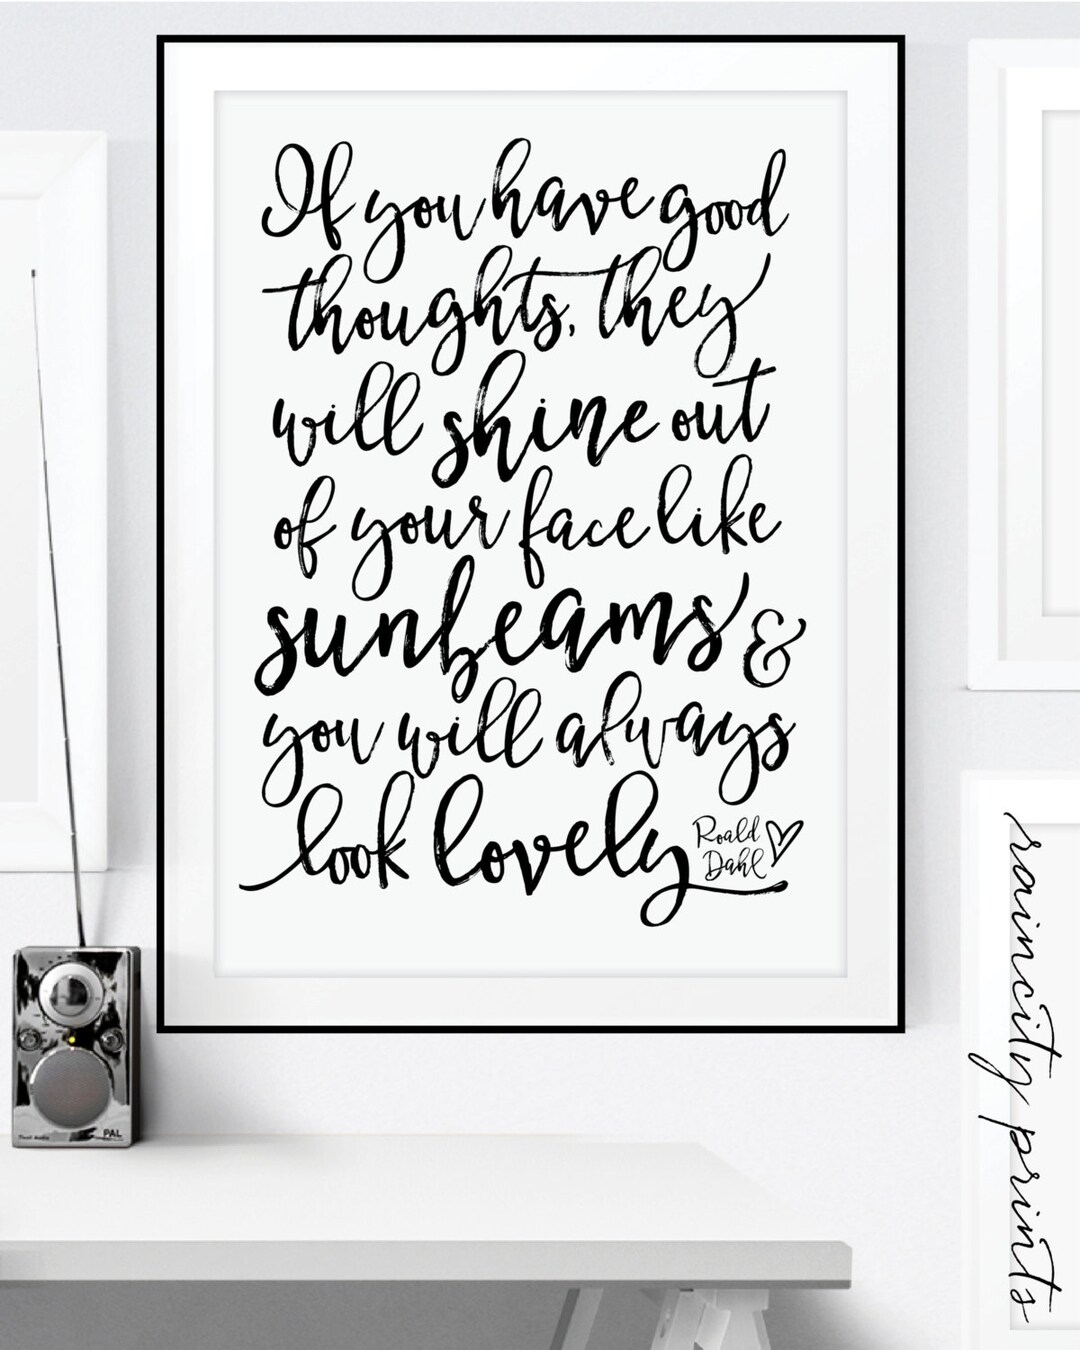 If you have good
thoughts, they
will shine out
of your face like
sunbeams &
you will always
look lovely
Roald
Dahl
raincity prints
PAL